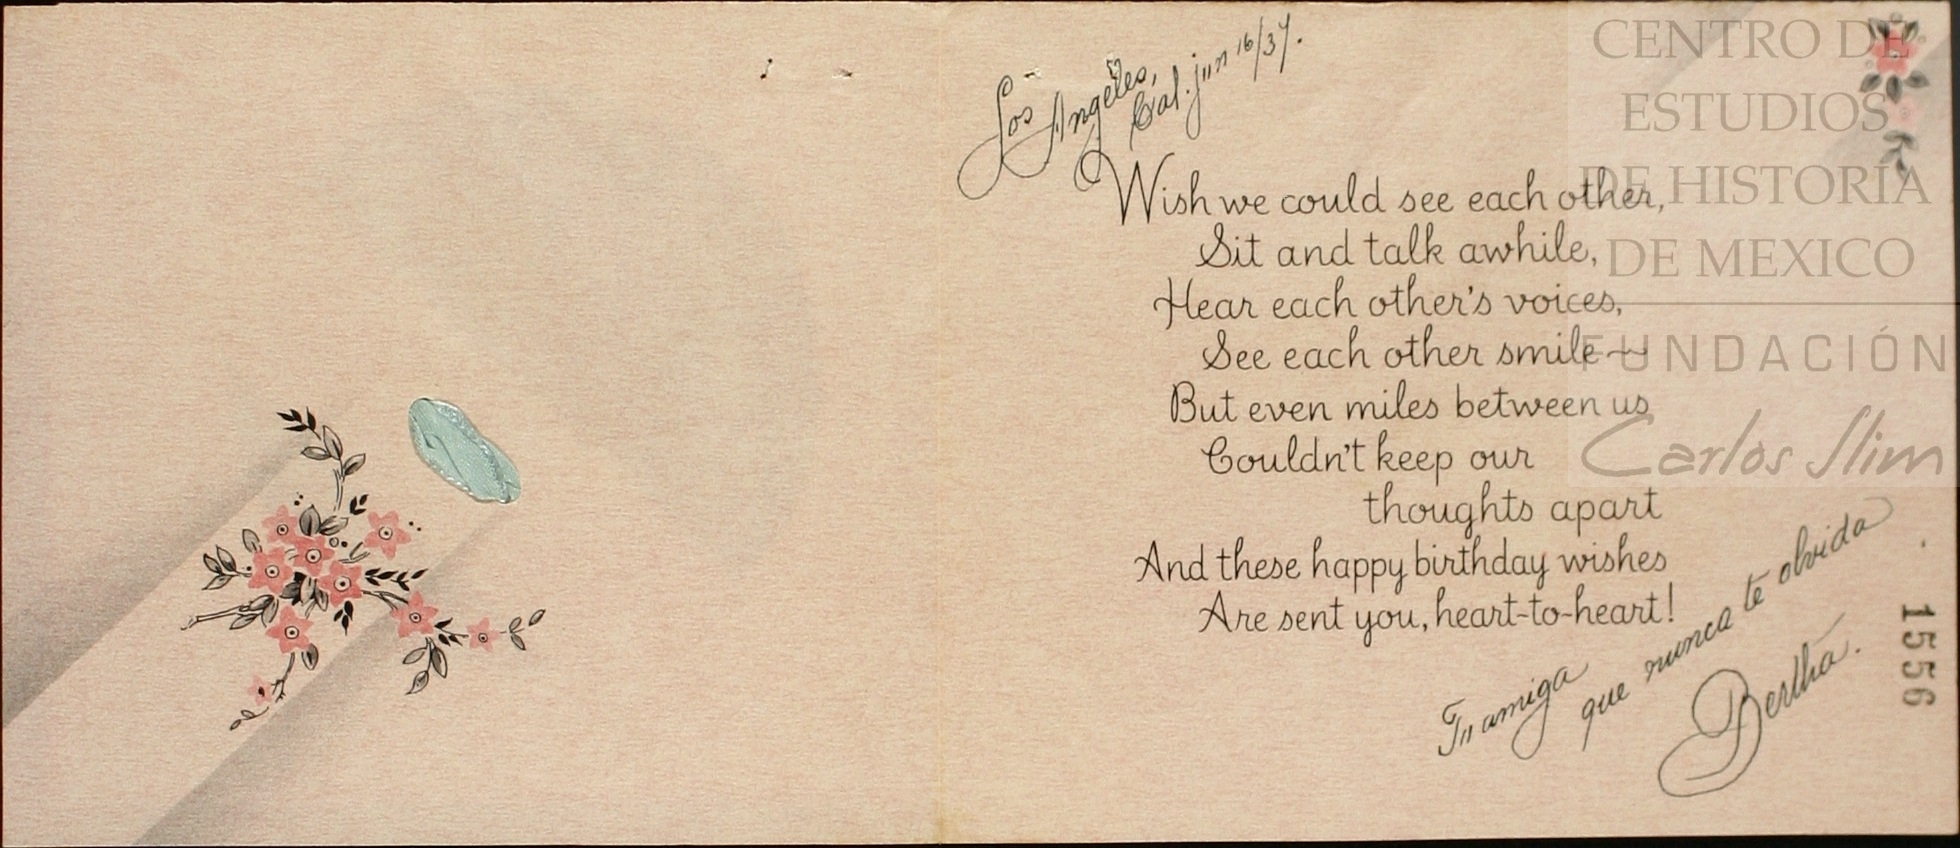 Los Angeles,
Cal. jun 16/37.
Wish we could see each other,
Sit and talk awhile,
Hear each other's voices,
See each other smile—
But even miles between us
Couldn't keep our
thoughts apart
And these happy birthday wishes
Are sent you, heart-to-heart!
Tu amiga
que nunca te olvida
Bertha.
1556
CENTRO DE
ESTUDIOS
DE HISTORIA
DE MEXICO
FUNDACIÓN
Carlos Slim